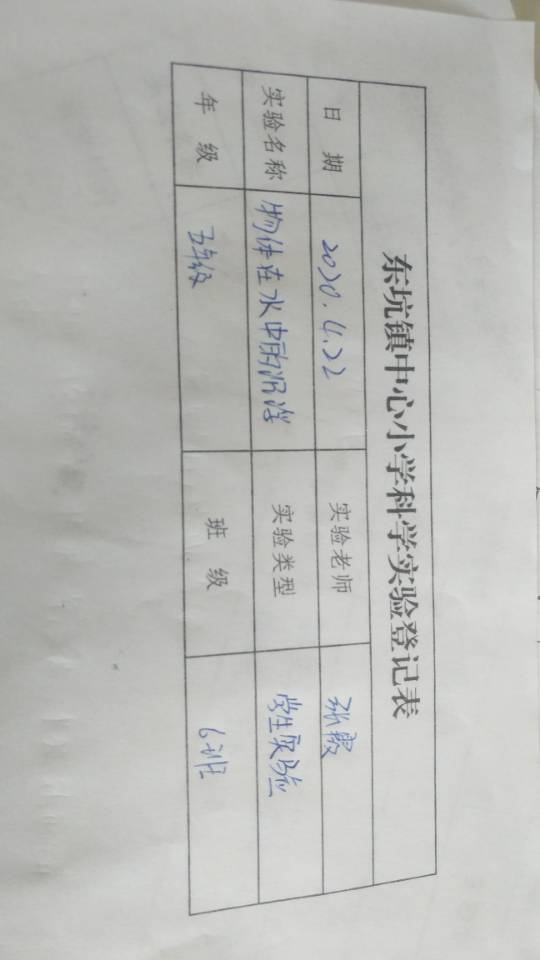 东坑镇中心小学科学实验登记表
日 期 2020.4.22 实验老师 张霞
实验名称 物体在水中的沉浮 实验类型 学生实验
年 级 五年级 班 级 6班